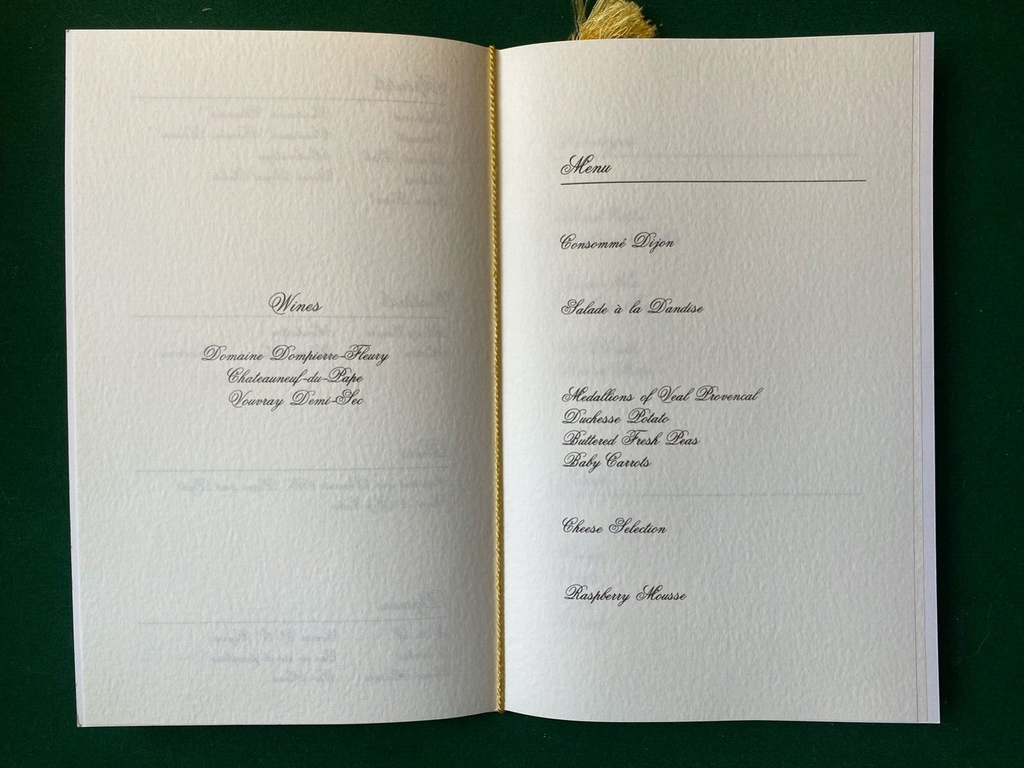 Wines
Domaine Dompierre-Fleury
Chateauneuf-du-Pape
Vouvray Demi-Sec
Menu
Consommé Dijon
Salade à la Dandise
Medallions of Veal Provencal
Duchesse Potato
Buttered Fresh Peas
Baby Carrots
Cheese Selection
Raspberry Mousse